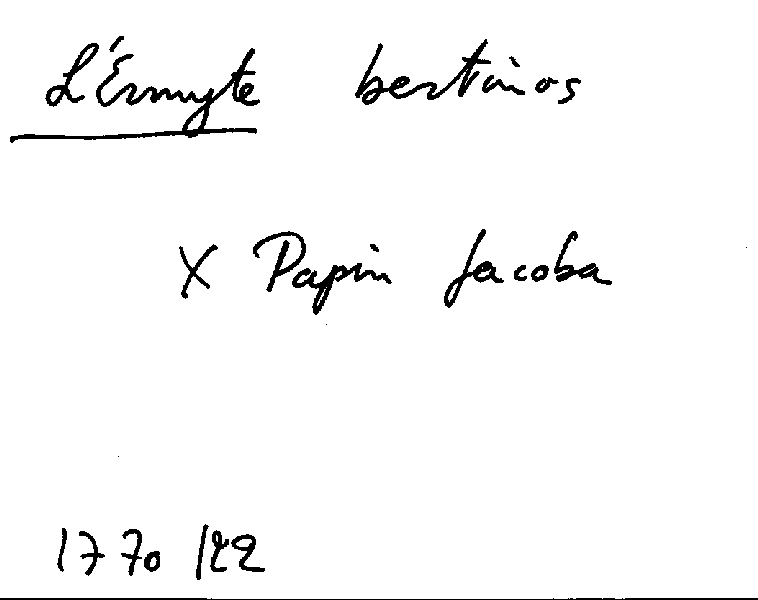 L'Érmyte bertinos
X Papin Jacoba
1770/122